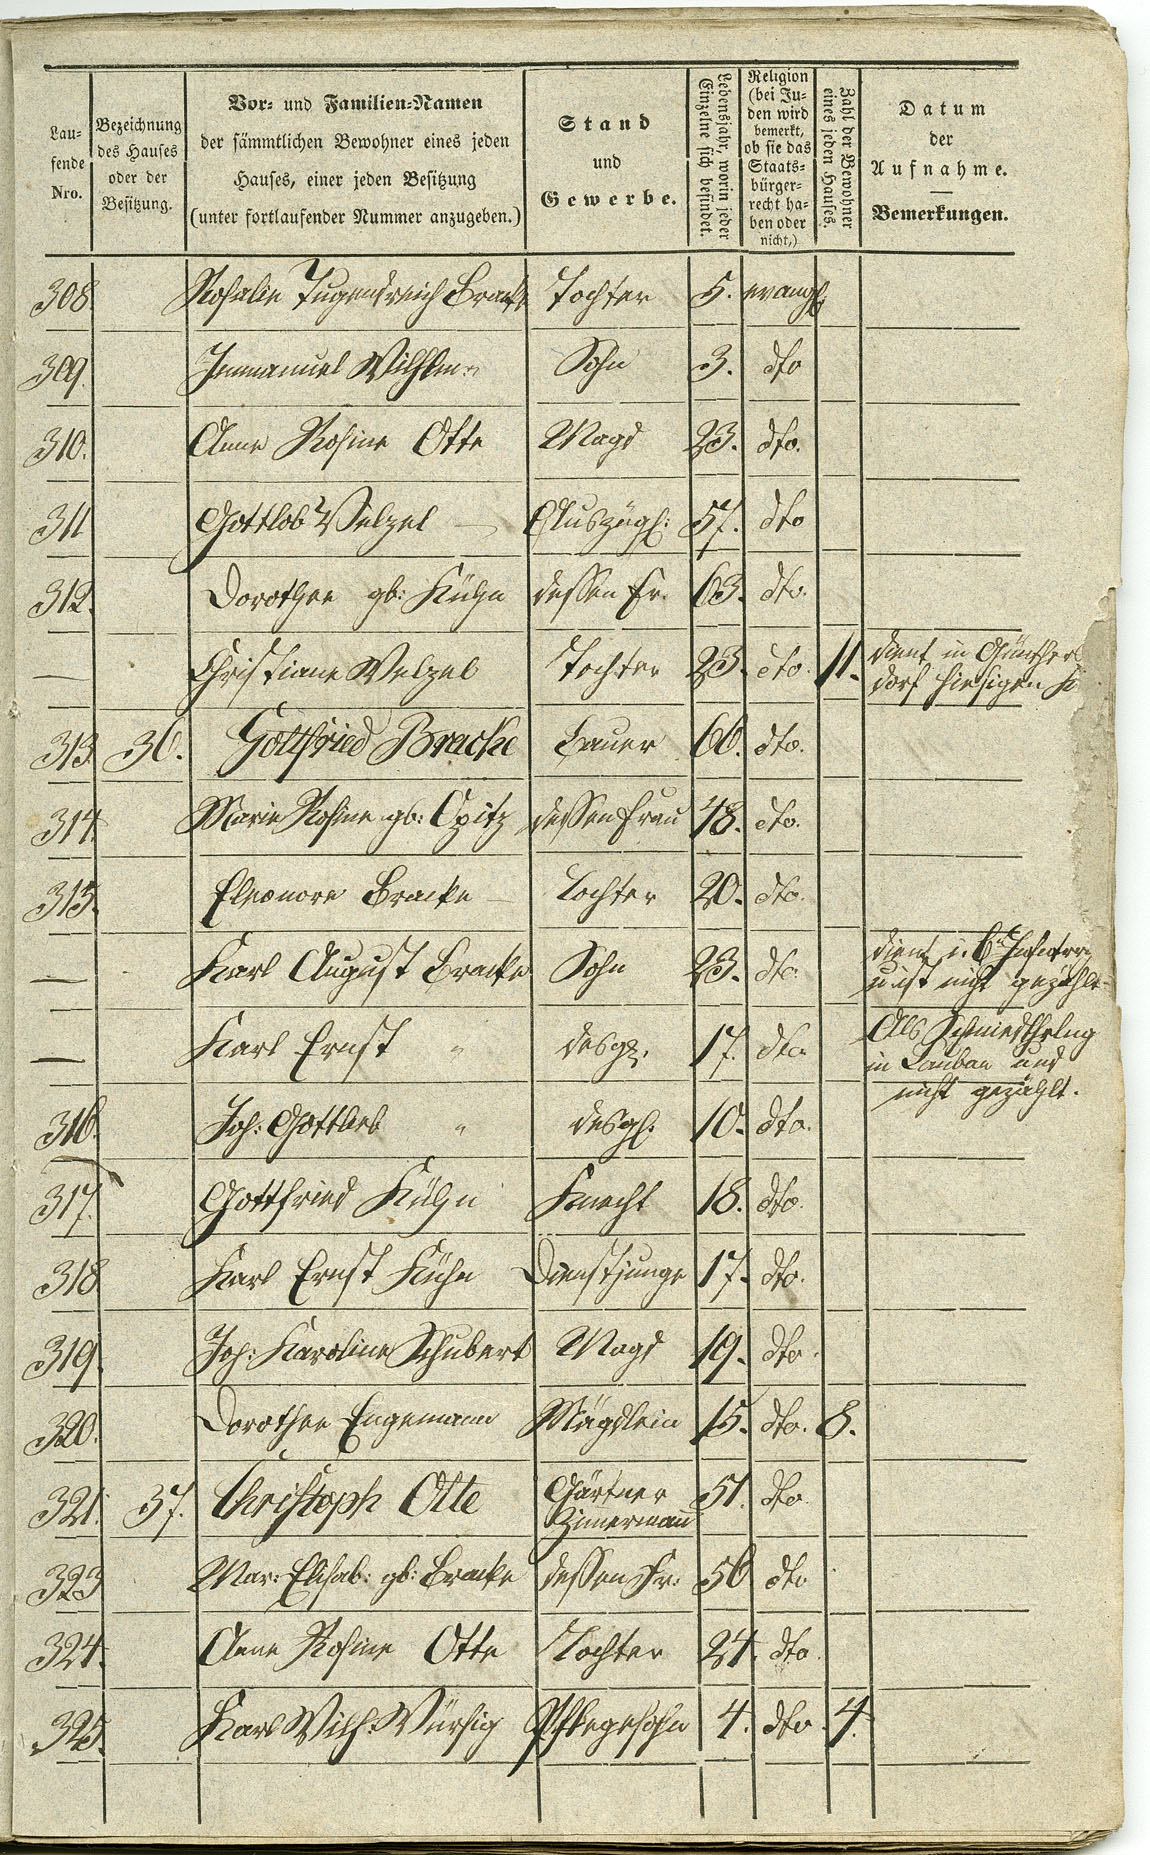 Lau-
fende
Nro.
Bezeichnung
des Hauses
oder der
Besitzung.
Vor- und Familien-Namen
der sämmtlichen Bewohner eines jeden
Hauses, einer jeden Besitzung
(unter fortlaufender Nummer anzugeben.)
Stand
und
Gewerbe.
Lebensjahr, worin jeder
Einzelne sich befindet.
Religion
(bei Ju-
den wird
bemerkt,
ob sie das
Staats-
bürger-
recht ha-
ben oder
nicht,)
Zahl der Bewohner
eines jeden Hauses.
Datum
der
Aufnahme.
Bemerkungen.
308. Rosalie Tugendreich Bracke Tochter 5. evangl
309. Immanuel Wilhlm " Sohn 3. dto
310. Anne Rosine Otte Magd 23. dto.
311 Gottlob Welzel — Auszügl: 57. dto
312. Dorothee gb: Kühn dessen Fr. 63. dto.
— Christiane Welzel Tochter 23. dto. 11. dient in Günthers
dorf hiesigen
313. 36. Gottfried Bracke Bauer 66. dto.
314. Marie Rosine gb: Opitz dessen Frau 48. dto.
315. Eleonore Bracke — Tochter 20. dto.
— Karl August Bracke Sohn 23. dto dient i. 6t Infantr
u ist nicht gezählt
— Karl Ernst " desgl. 17. dto. Als Schmiedthrlng
in Lauban und
nicht gezählt.
316. Joh: Gottlieb " desgl. 10. dto.
317. Gottfried Kühn Knecht 18. dto.
318 Karl Ernst Kühn Dienstjunge 17. dto.
319. Joh: Karoline Schubert Magd 19. dto.
320. Dorothee Engemann Mägdlein 15. dto. 8.
321. 37. Christoph Otte Gärtner
Zimermann 51. dto.
323 Mar: Elisab: gb: Bracke dessen Fr: 56 dto
324. Anne Rosine Otte Tochter 24. dto.
325. Karl Wilh: Würsig Pflegesohn 4. dto. 4.